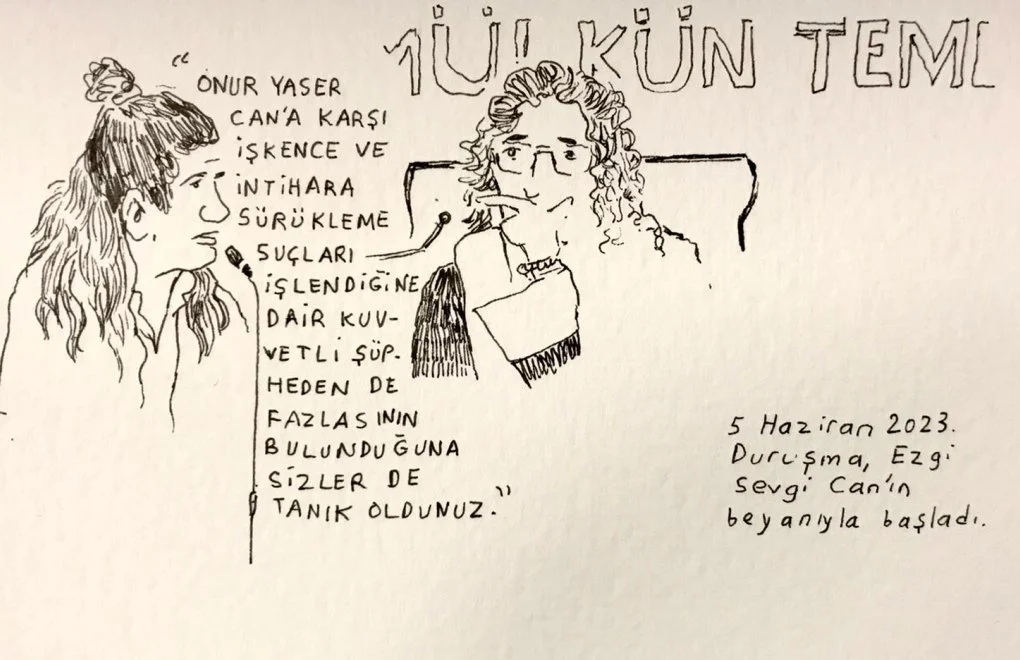 MÜLKÜN TEM
“ONUR YASER
CAN'A KARŞI
İŞKENCE VE
İNTİHARA
SÜRÜKLEME
SUÇLARI
İŞLENDİĞİNE
DAİR KUV-
VETLİ ŞÜP-
HEDEN DE
FAZLASININ
BULUNDUĞUNA
SİZLER DE
TANIK OLDUNUZ.”
5 Haziran 2023.
Duruşma, Ezgi
Sevgi Can'ın
beyanıyla başladı.